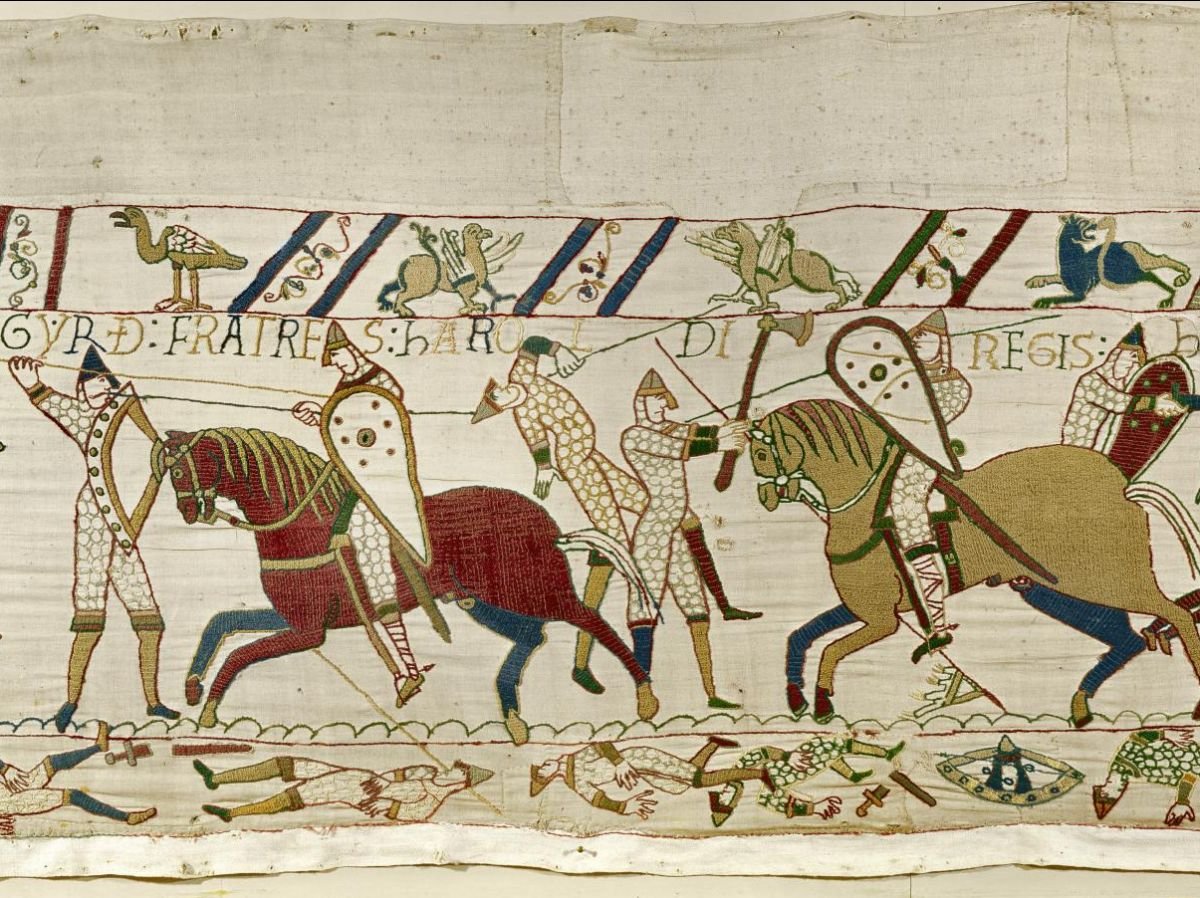 GYRÐ: FRATRES: hAROLDI REGIS: h